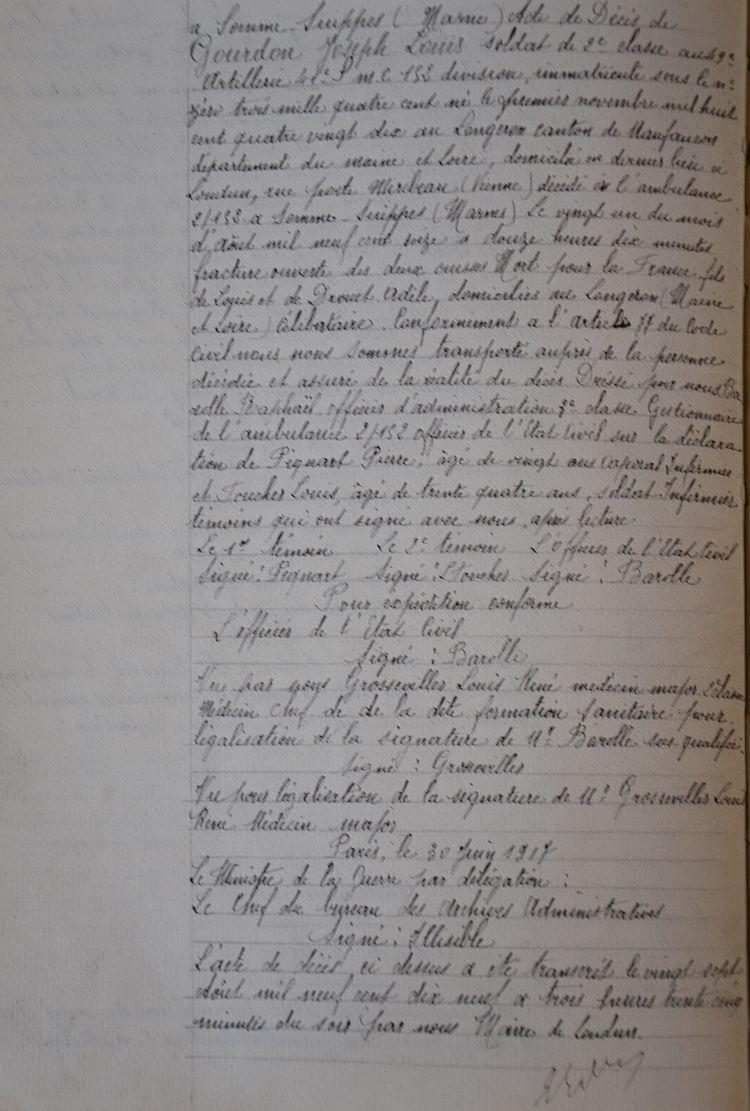 a Somme-Suippes (Marne) Acte de Décès de
Gourdon Joseph Louis soldat de 2e classe au 49e
Artillerie 41e S.M.C. 152 division, immatriculé sous le no
zéro trois mille quatre cent né le premier novembre mil huit
cent quatre vingt dix au Longeron canton de Monfaucon
département du maine et Loire, domicilié en dernier lieu à
Loudun, rue porte Mirebeau (Vienne) décédé à l'ambulance
2/152 a Somme-Suippes (Marne) Le vingt un du mois
d'août mil neuf cent seize à douze heures dix minutes
fracture ouverte des deux cuisses Mort pour la France, fils
de Louis et de Drouet Adèle, domiciliés au Longeron (Maine
et Loire) célibataire. Conformément a l'article 77 du Code
civil nous nous sommes transporté auprès de la personne
décédée et assuré de la réalité du décès Dressé par nous Ba
rolle Raphaël officier d'administration 3e classe Gestionnaire
de l'ambulance 2/152 officier de l'Etat Civil sur la déclara-
tion de Piquart Pierre, âgé de vingt ans Caporal Infirmier
et Toucher Louis, âgé de trente quatre ans, soldat Infirmier
témoins qui ont signé avec nous, après lecture
Le 1er témoin Le 2e témoin L'officier de l'Etat Civil
Signé : Piquart Signé : L Toucher Signé : Barolle
Pour expédition conforme
L'officier de l'Etat Civil
Signé : Barolle
Vu par nous Grossevilles Louis René medecin major 2 classe
Médecin Chef de de la dite formation sanitaire pour
légalisation de la signature de Mr Barolle sus qualifié
Signé : Grossevilles
Vu pour légalisation de la signature de Mr Grossevilles Louis
René Médecin major
Paris, le 20 Juin 1917
Le Ministre de la Guerre par délégation :
Le Chef du bureau des Archives Administratives
Signé : Illisible
L'acte de décès ci dessus a été transcrit le vingt sept
Août mil neuf cent dix neuf a trois heures trente cinq
minutes du soir par nous Maire de Loudun.